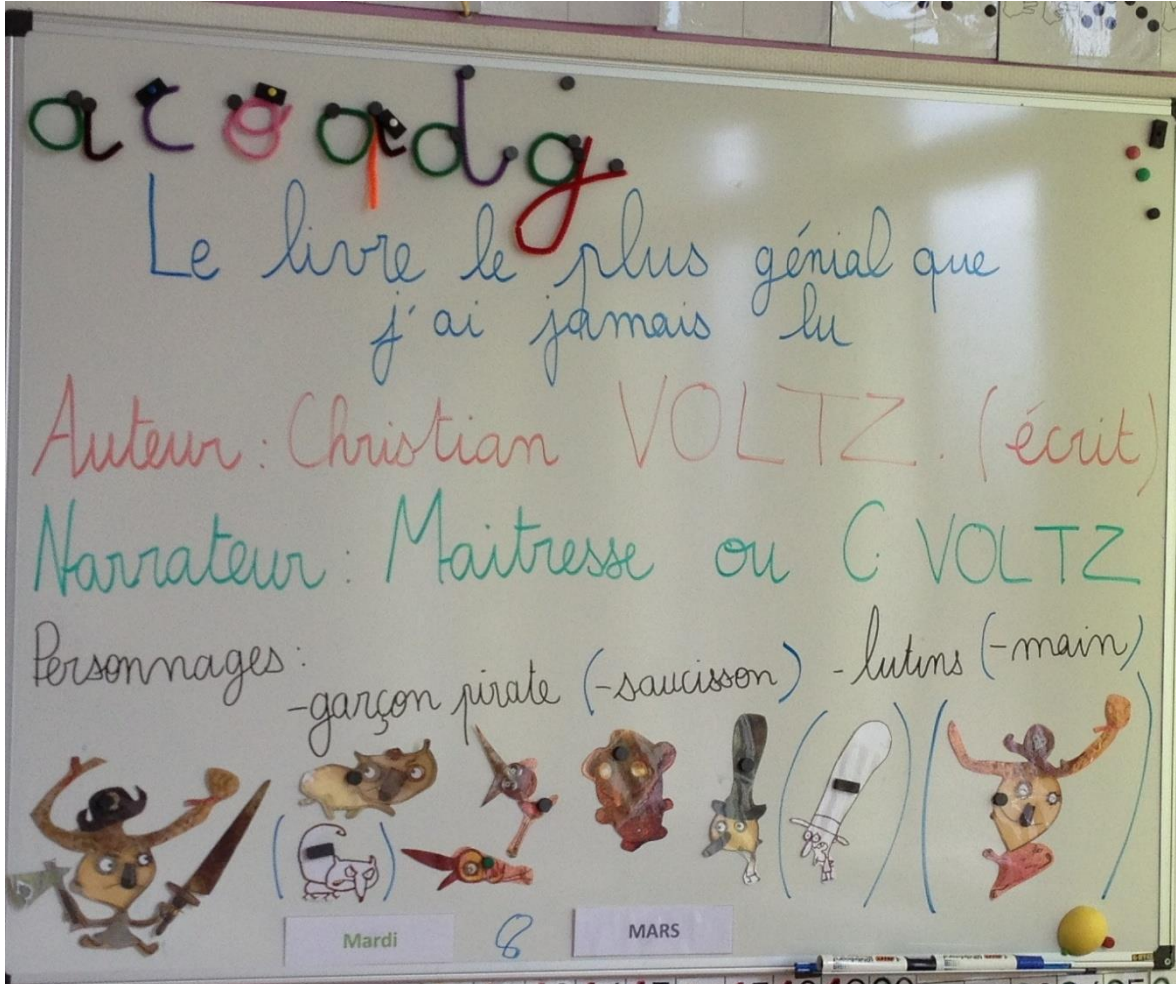 a c o q d g
Le livre le plus génial que
j'ai jamais lu
Auteur : Christian VOLTZ. (écrit)
Narrateur : Maitresse ou C. VOLTZ
Personnages :
-garçon pirate (-saucisson) -lutins (-main)
Mardi 8 MARS